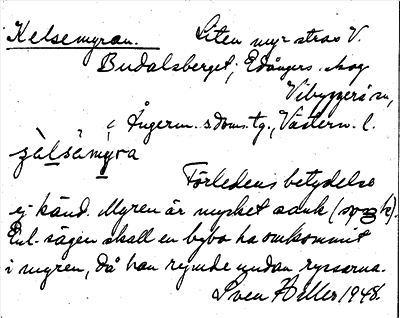 Kelsemyran. Liten myr strax V.
Budalsberget, Edångers skog
Vibyggerå sn,
Ångerm. s. doms. tg., Västern. l.
Förledens betydelse
ej känd. Myren är mycket sank
Enl. sägen skall en bybo ha omkommit
i myren, då han rymde undan ryssarna.
Sven Heller 1948.